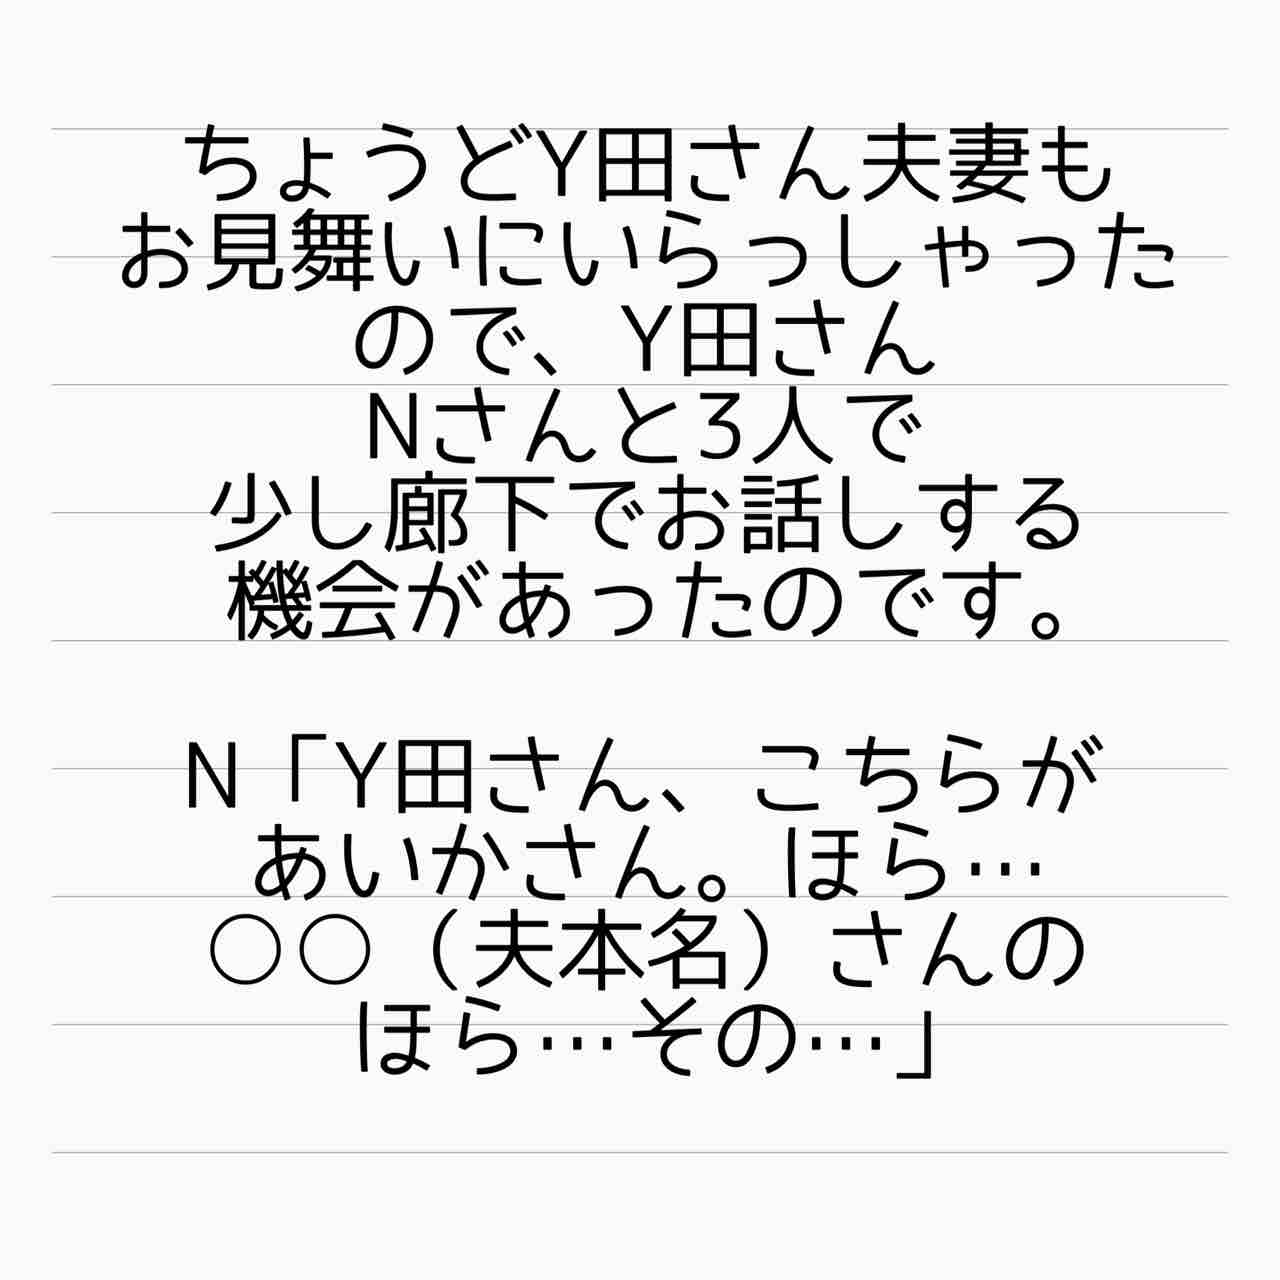 ちょうどY田さん夫妻も
お見舞いにいらっしゃった
ので、Y田さん
Nさんと3人で
少し廊下でお話しする
機会があったのです。
N「Y田さん、こちらが
あいかさん。ほら…
○○（夫本名）さんの
ほら…その…」